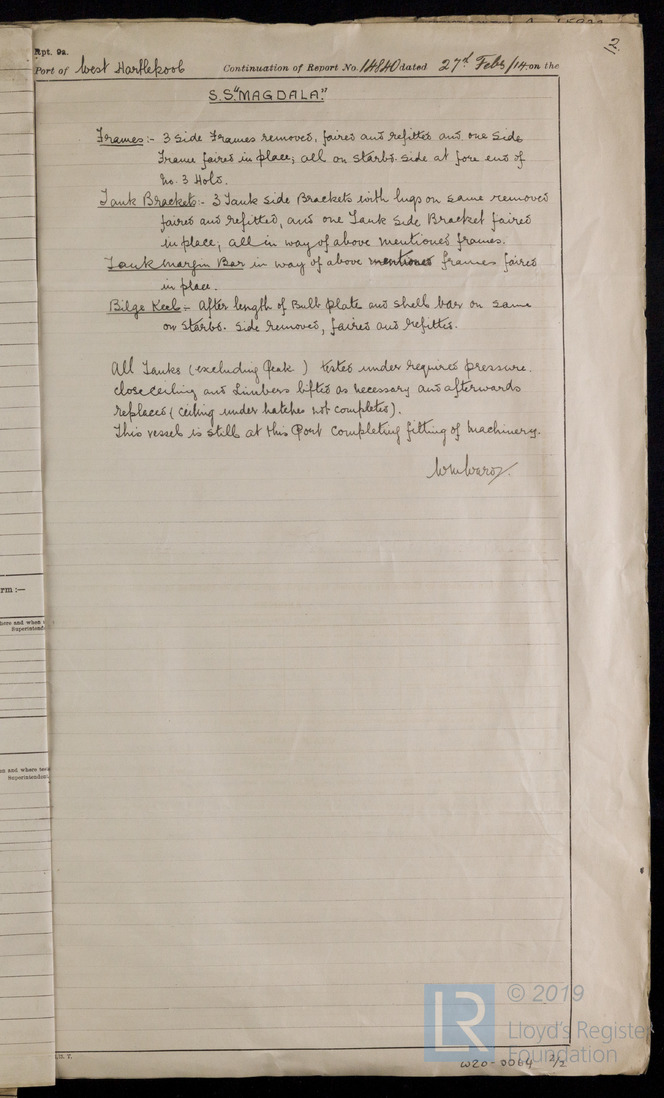 Rpt. 9a.
12
Port of West Hartlepool Continuation of Report No. 14840 dated 27th Feby/14 on the
S.S. "MAGDALA"
Frames:- 3 Side Frames removed, faired and refitted and one Side
Frame faired in place; all on starbd. side at fore end of
No. 3 Hold.
Tank Brackets:- 3 Tank Side Brackets with lugs on same removed
faired and refitted, and one Tank Side Bracket faired
in place; all in way of above mentioned frames.
Tank Margin Bar in way of above mentioned frames faired
in place.
Bilge Keel:- After length of Bulb plate and shell bar on same
on starbd. side removed, faired and refitted.
All Tanks (excluding Peak ) tested under required pressure.
Close ceiling and Limbers lifted as necessary and afterwards
replaced (ceiling under hatches not completed).
This vessel is still at this Port completing fitting of machinery.
rm :—
here and when
Superintend
en and where
Superintendent
© 2019
Lloyd's Register
Foundation
W20-0064 2/2